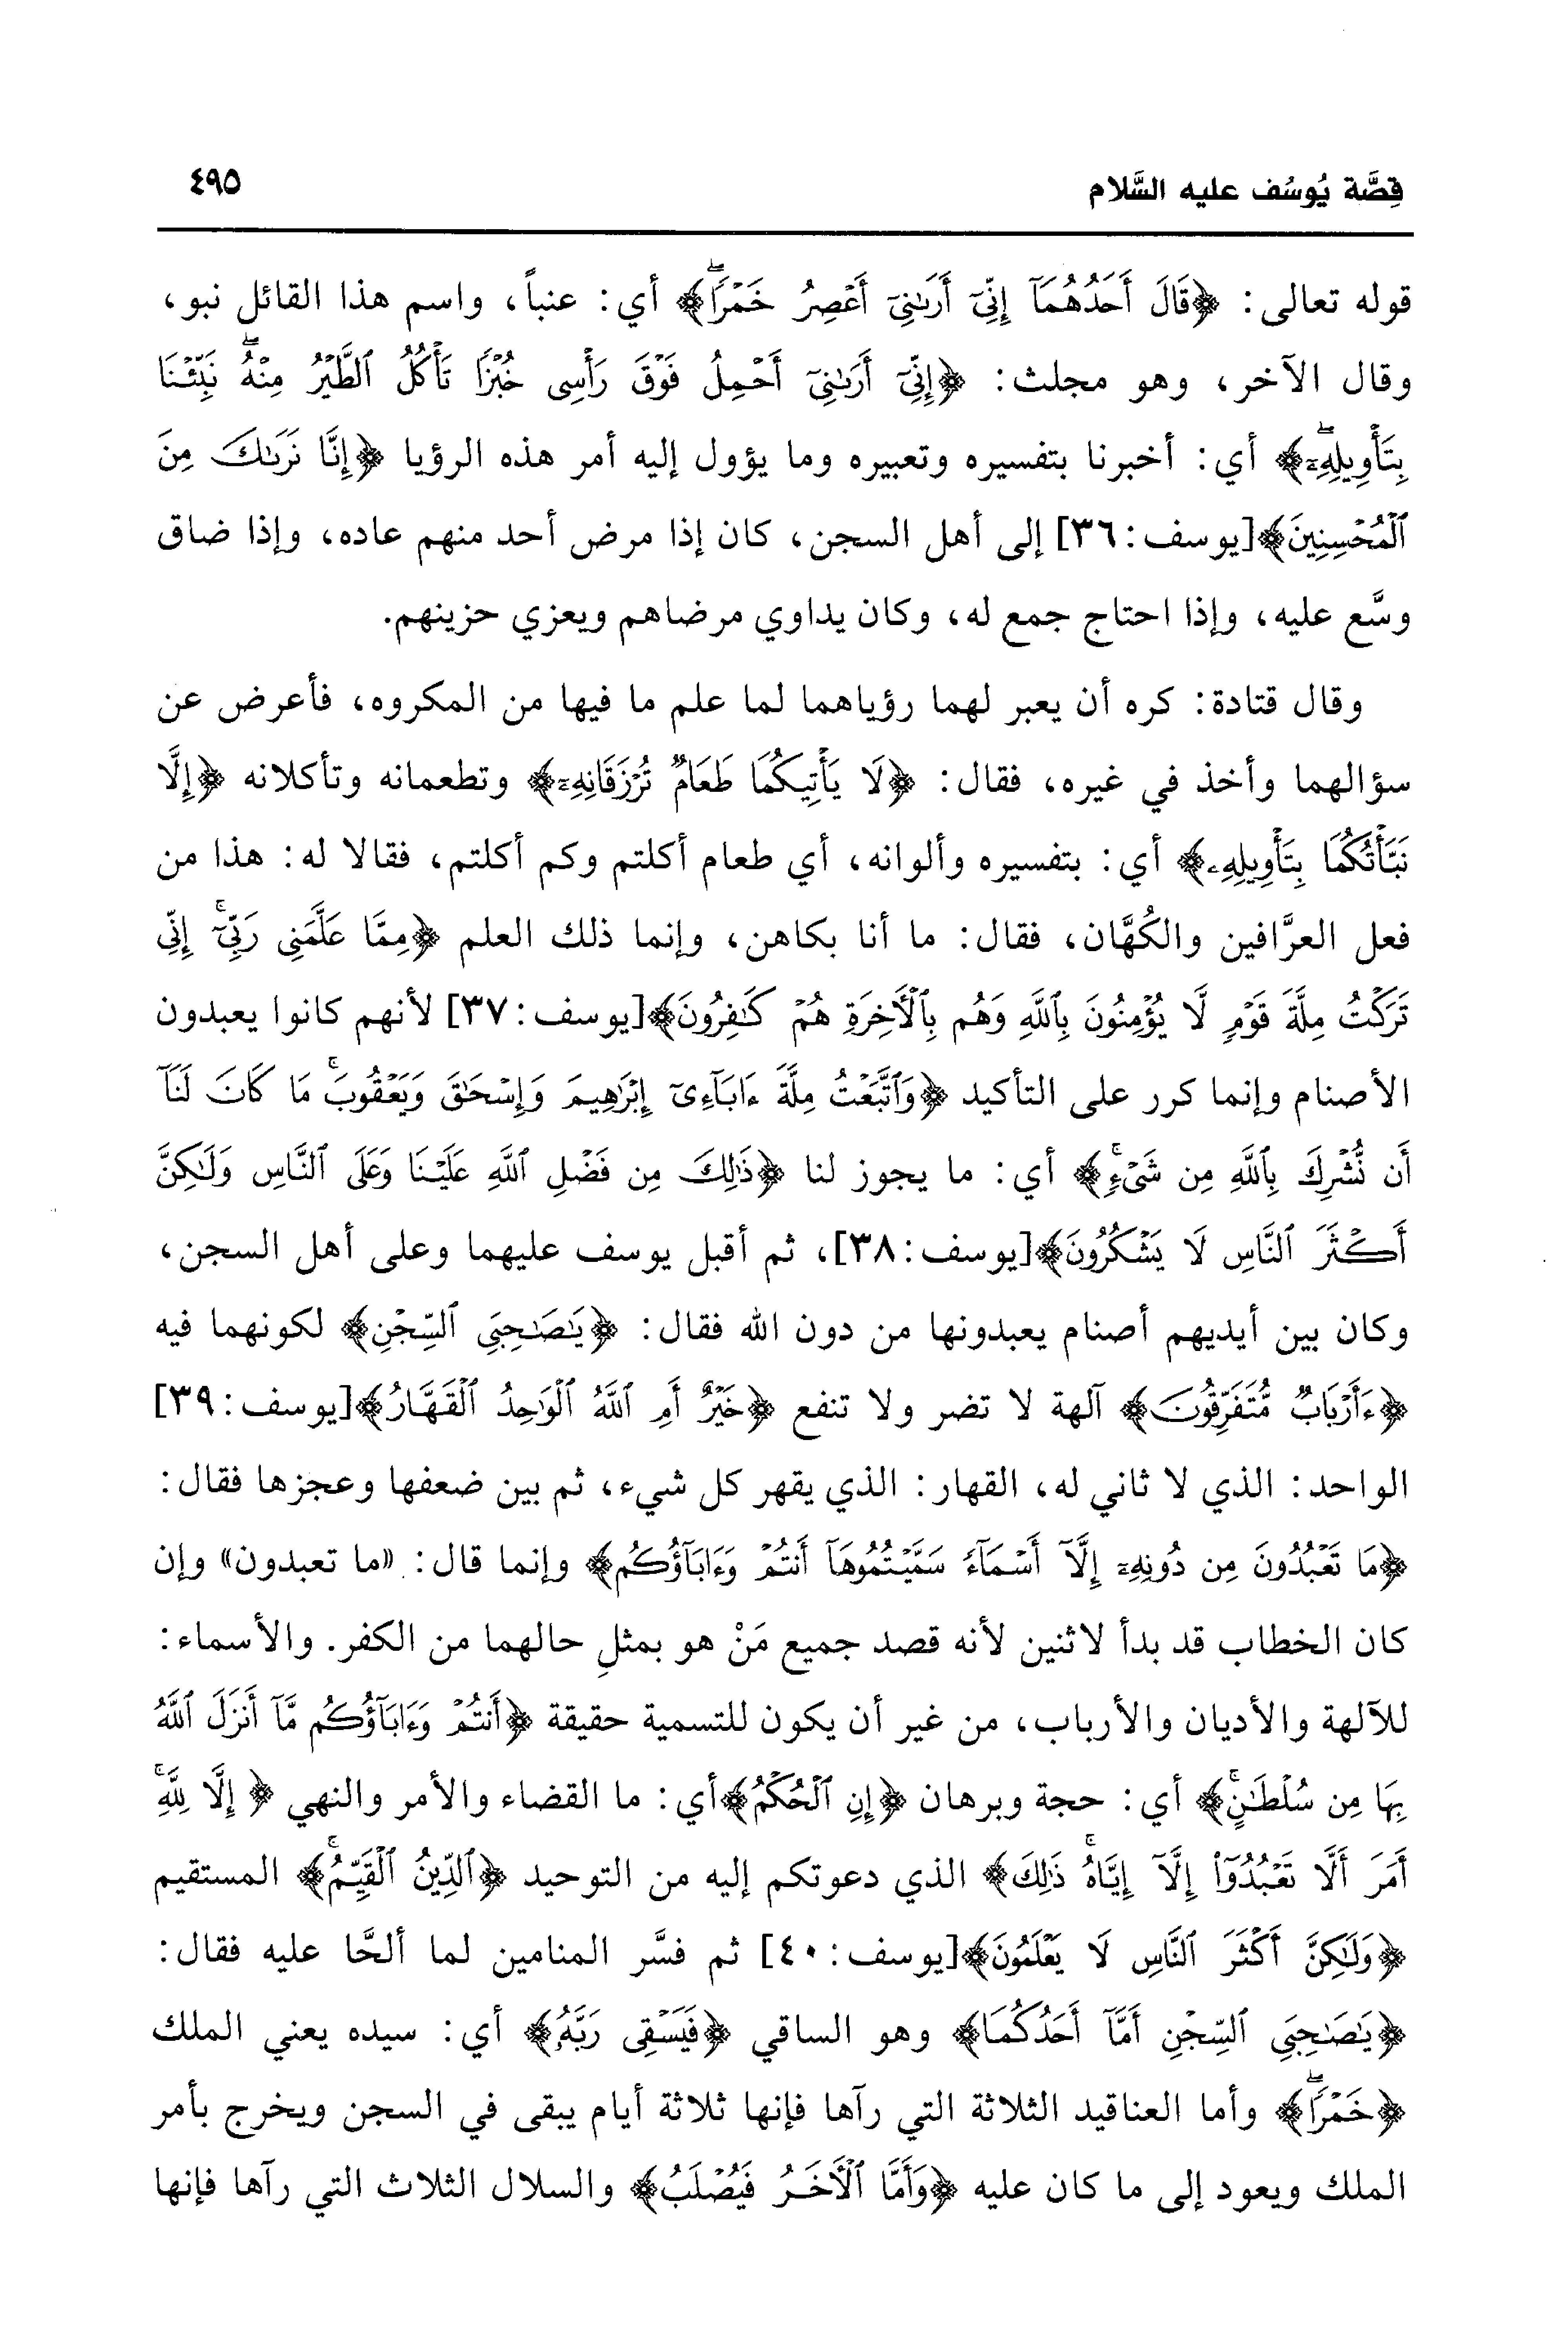 قِصَّة يُوسُف عليه السَّلام ٤٩٥
قوله تعالى: ﴿قَالَ أَحَدُهُمَآ إِنِّىٓ أَرَىٰنِىٓ أَعْصِرُ خَمْرًاۖ﴾ أي: عنباً، واسم هذا القائل نبو،
وقال الآخر، وهو مجلث: ﴿إِنِّىٓ أَرَىٰنِىٓ أَحْمِلُ فَوْقَ رَأْسِى خُبْزًا تَأْكُلُ ٱلطَّيْرُ مِنْهُۖ نَبِّئْنَا
بِتَأْوِيلِهِۦٓۖ﴾ أي: أخبرنا بتفسيره وتعبيره وما يؤول إليه أمر هذه الرؤيا ﴿إِنَّا نَرَىٰكَ مِنَ
ٱلْمُحْسِنِينَ﴾[يوسف: ٣٦] إلى أهل السجن، كان إذا مرض أحد منهم عاده، وإذا ضاق
وسَّع عليه، وإذا احتاج جمع له، وكان يداوي مرضاهم ويعزي حزينهم.
وقال قتادة: كره أن يعبر لهما رؤياهما لما علم ما فيها من المكروه، فأعرض عن
سؤالهما وأخذ في غيره، فقال: ﴿لَا يَأْتِيكُمَا طَعَامٌ تُرْزَقَانِهِۦٓ﴾ وتطعمانه وتأكلانه ﴿إِلَّا
نَبَّأْتُكُمَا بِتَأْوِيلِهِۦ﴾ أي: بتفسيره وألوانه، أي طعام أكلتم وكم أكلتم، فقالا له: هذا من
فعل العرَّافين والكُهَّان، فقال: ما أنا بكاهن، وإنما ذلك العلم ﴿مِمَّا عَلَّمَنِى رَبِّىٓۚ إِنِّى
تَرَكْتُ مِلَّةَ قَوْمٍ لَّا يُؤْمِنُونَ بِٱللَّهِ وَهُم بِٱلْأَخِرَةِ هُمْ كَـٰفِرُونَ﴾[يوسف: ٣٧] لأنهم كانوا يعبدون
الأصنام وإنما كرر على التأكيد ﴿وَٱتَّبَعْتُ مِلَّةَ ءَابَآءِىٓ إِبْرَٰهِيمَ وَإِسْحَـٰقَ وَيَعْقُوبَۚ مَا كَانَ لَنَآ
أَن نُّشْرِكَ بِٱللَّهِ مِن شَىْءٍۚ﴾ أي: ما يجوز لنا ﴿ذَٰلِكَ مِن فَضْلِ ٱللَّهِ عَلَيْنَا وَعَلَى ٱلنَّاسِ وَلَـٰكِنَّ
أَكْثَرَ ٱلنَّاسِ لَا يَشْكُرُونَ﴾[يوسف: ٣٨]، ثم أقبل يوسف عليهما وعلى أهل السجن،
وكان بين أيديهم أصنام يعبدونها من دون الله فقال: ﴿يَـٰصَـٰحِبَىِ ٱلسِّجْنِ﴾ لكونهما فيه
﴿ءَأَرْبَابٌ مُّتَفَرِّقُونَ﴾ آلهة لا تضر ولا تنفع ﴿خَيْرٌ أَمِ ٱللَّهُ ٱلْوَٰحِدُ ٱلْقَهَّارُ﴾[يوسف: ٣٩]
الواحد: الذي لا ثاني له، القهار: الذي يقهر كل شيء، ثم بين ضعفها وعجزها فقال:
﴿مَا تَعْبُدُونَ مِن دُونِهِۦٓ إِلَّآ أَسْمَآءً سَمَّيْتُمُوهَآ أَنتُمْ وَءَابَآؤُكُم﴾ وإنما قال: «ما تعبدون» وإن
كان الخطاب قد بدأ لاثنين لأنه قصد جميع مَنْ هو بمثلِ حالهما من الكفر. والأسماء:
للآلهة والأديان والأرباب، من غير أن يكون للتسمية حقيقة ﴿أَنتُمْ وَءَابَآؤُكُم مَّآ أَنزَلَ ٱللَّهُ
بِهَا مِن سُلْطَـٰنٍۚ﴾ أي: حجة وبرهان ﴿إِنِ ٱلْحُكْمُ﴾أي: ما القضاء والأمر والنهي ﴿ إِلَّا لِلَّهِۚ
أَمَرَ أَلَّا تَعْبُدُوٓا۟ إِلَّآ إِيَّاهُۚ ذَٰلِكَ﴾ الذي دعوتكم إليه من التوحيد ﴿ٱلدِّينُ ٱلْقَيِّمُۚ﴾ المستقيم
﴿وَلَـٰكِنَّ أَكْثَرَ ٱلنَّاسِ لَا يَعْلَمُونَ﴾[يوسف: ٤٠] ثم فسَّر المنامين لما ألحَّا عليه فقال:
﴿يَـٰصَـٰحِبَىِ ٱلسِّجْنِ أَمَّآ أَحَدُكُمَا﴾ وهو الساقي ﴿فَيَسْقِى رَبَّهُۥ﴾ أي: سيده يعني الملك
﴿خَمْرًاۖ﴾ وأما العناقيد الثلاثة التي رآها فإنها ثلاثة أيام يبقى في السجن ويخرج بأمر
الملك ويعود إلى ما كان عليه ﴿وَأَمَّا ٱلْأَخَرُ فَيُصْلَبُ﴾ والسلال الثلاث التي رآها فإنها